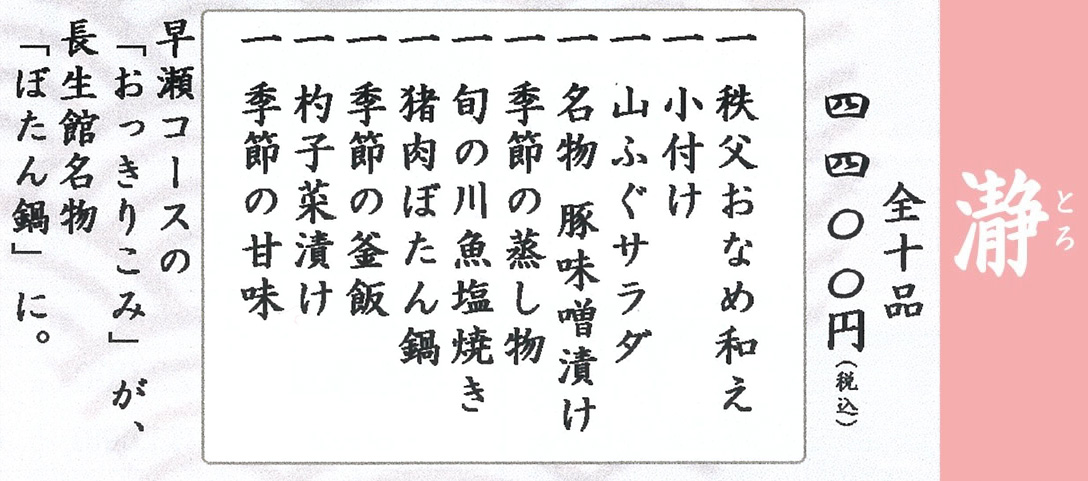 瀞
とろ
全十品
四四〇〇円(税込)
一 秩父おなめ和え
一 小付け
一 山ふぐサラダ
一 名物 豚味噌漬け
一 季節の蒸し物
一 旬の川魚塩焼き
一 猪肉ぼたん鍋
一 季節の釜飯
一 杓子菜漬け
一 季節の甘味
早瀬コースの
「おっきりこみ」が、
長生館名物
「ぼたん鍋」に。